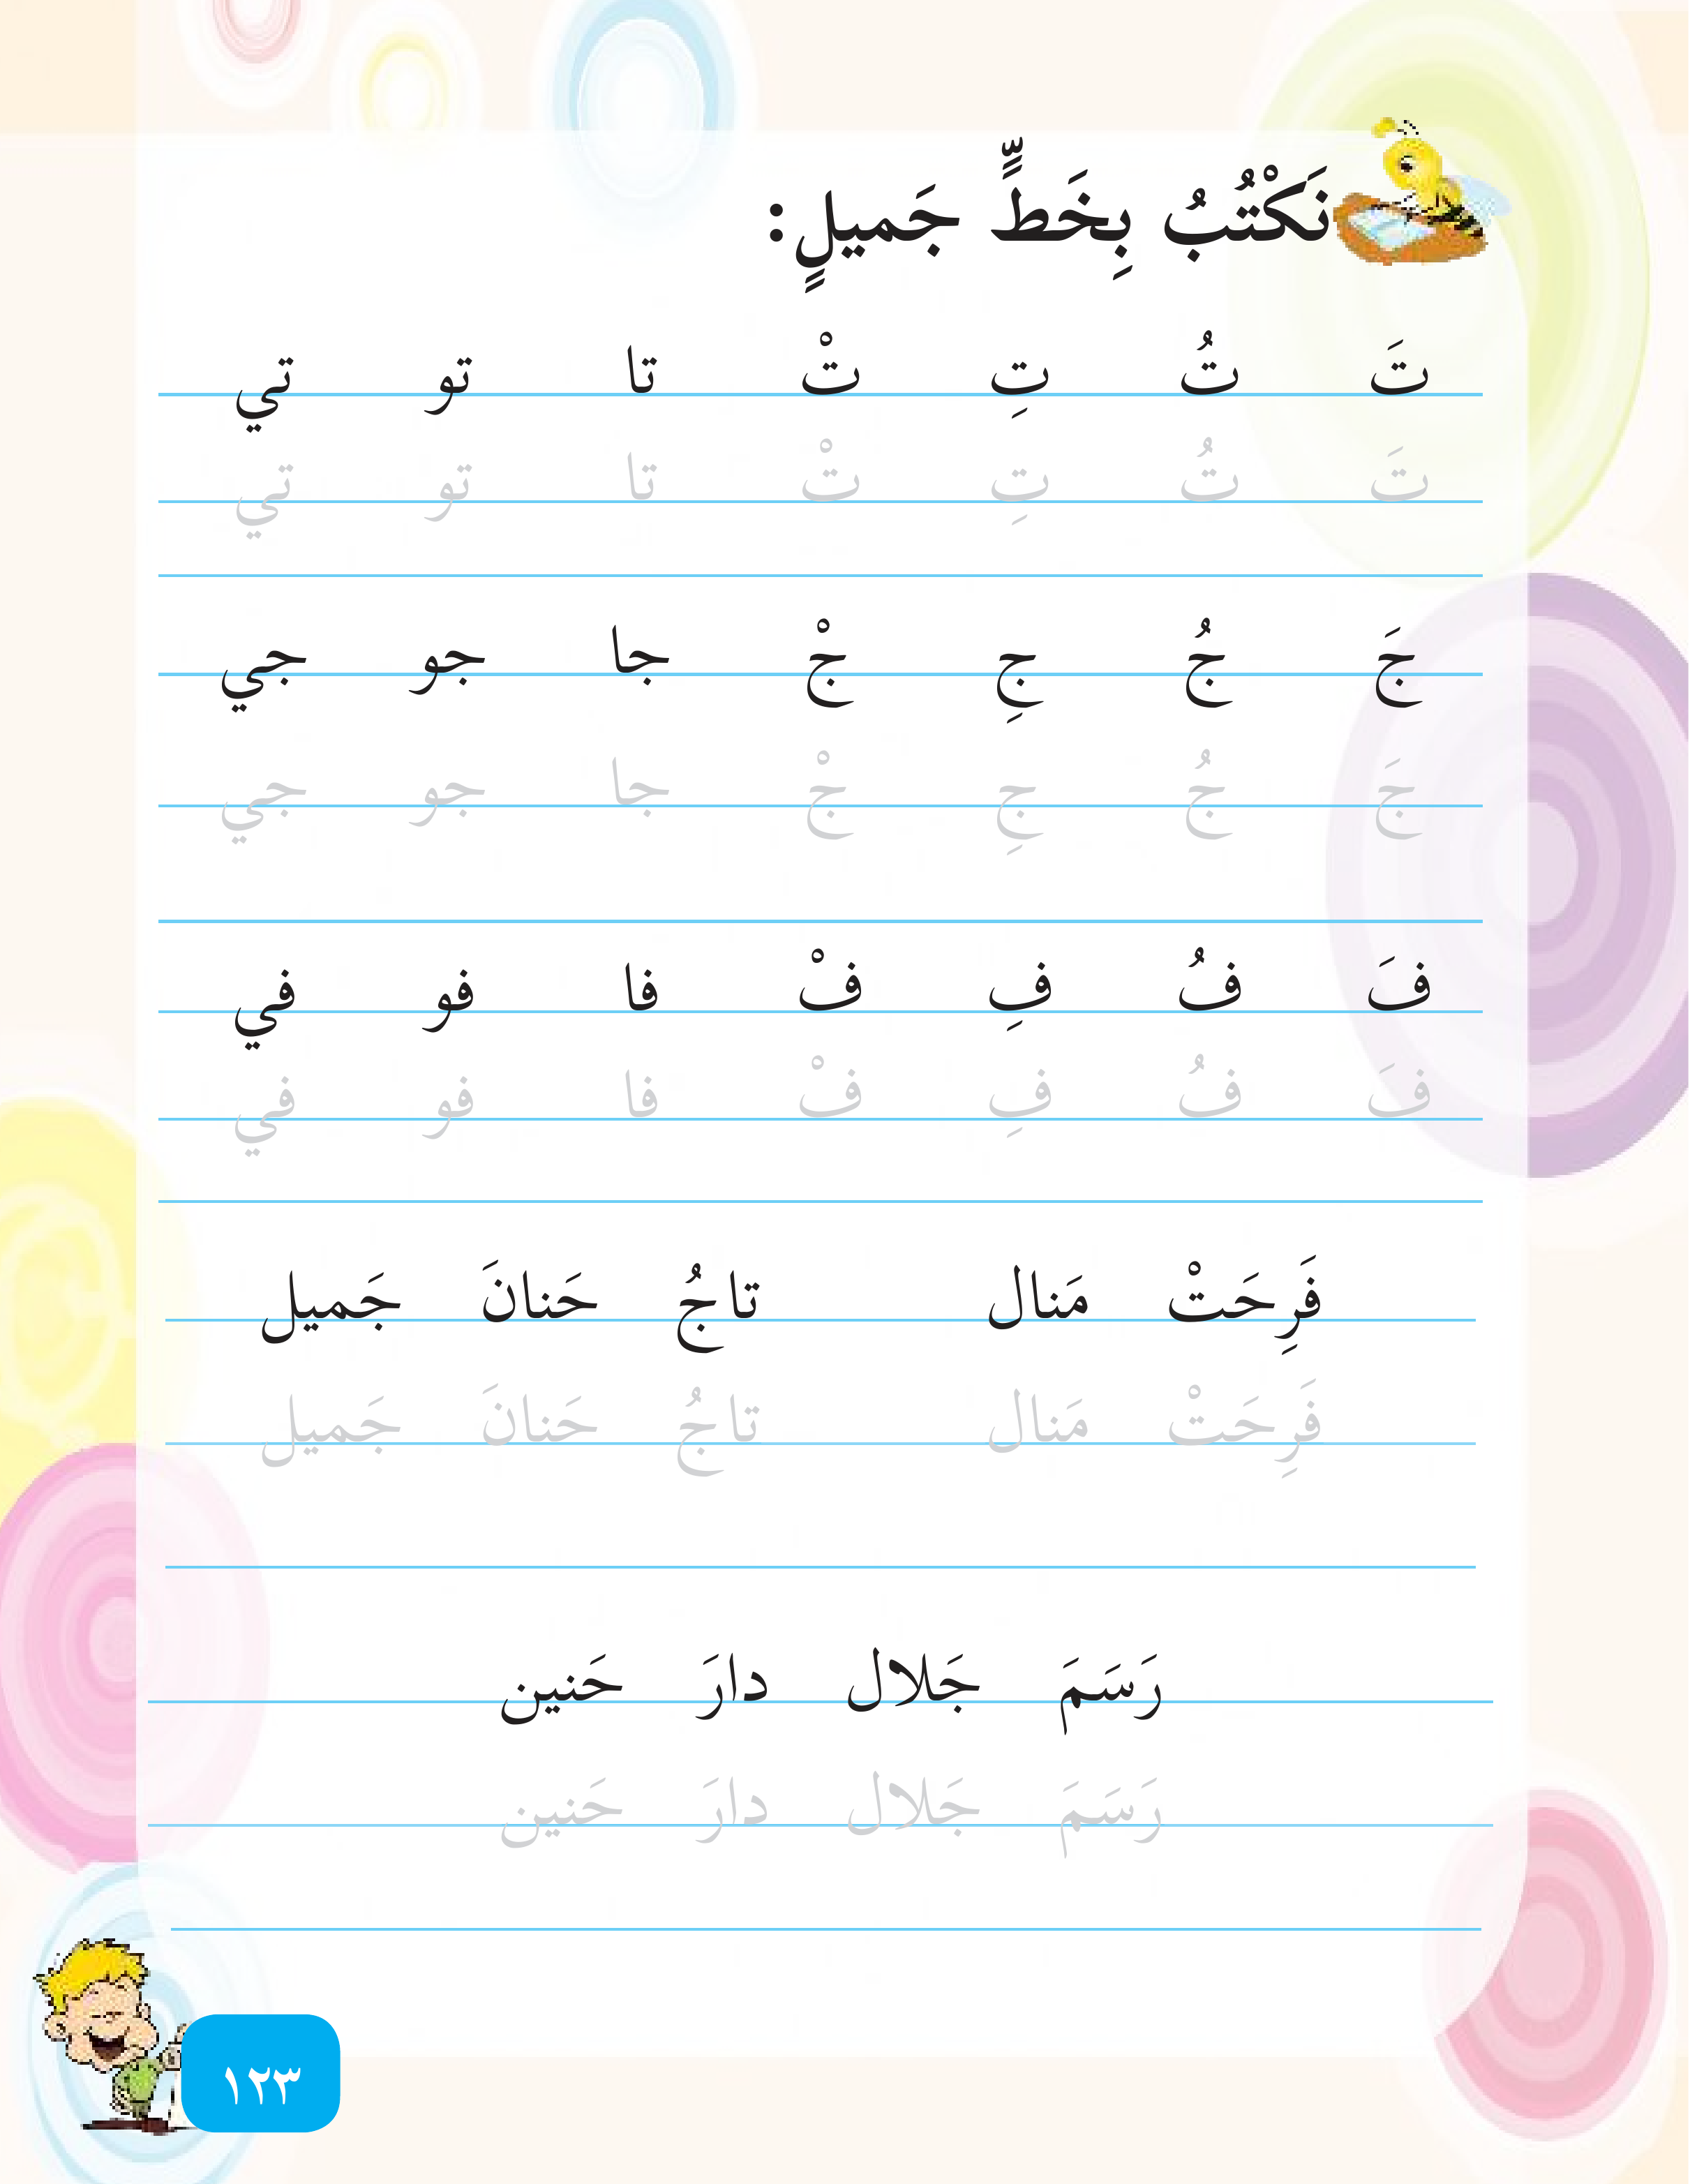 نَكْتُبُ بِخَطٍّ جَميلٍ:
تَ تُ تِ تْ تا تو تي
تَ تُ تِ تْ تا تو تي
جَ جُ جِ جْ جا جو جي
جَ جُ جِ جْ جا جو جي
فَ فُ فِ فْ فا فو في
فَ فُ فِ فْ فا فو في
فَرِحَتْ مَنال تاجُ حَنانَ جَميل
فَرِحَتْ مَنال تاجُ حَنانَ جَميل
رَسَمَ جَلال دارَ حَنين
رَسَمَ جَلال دارَ حَنين
١٢٣